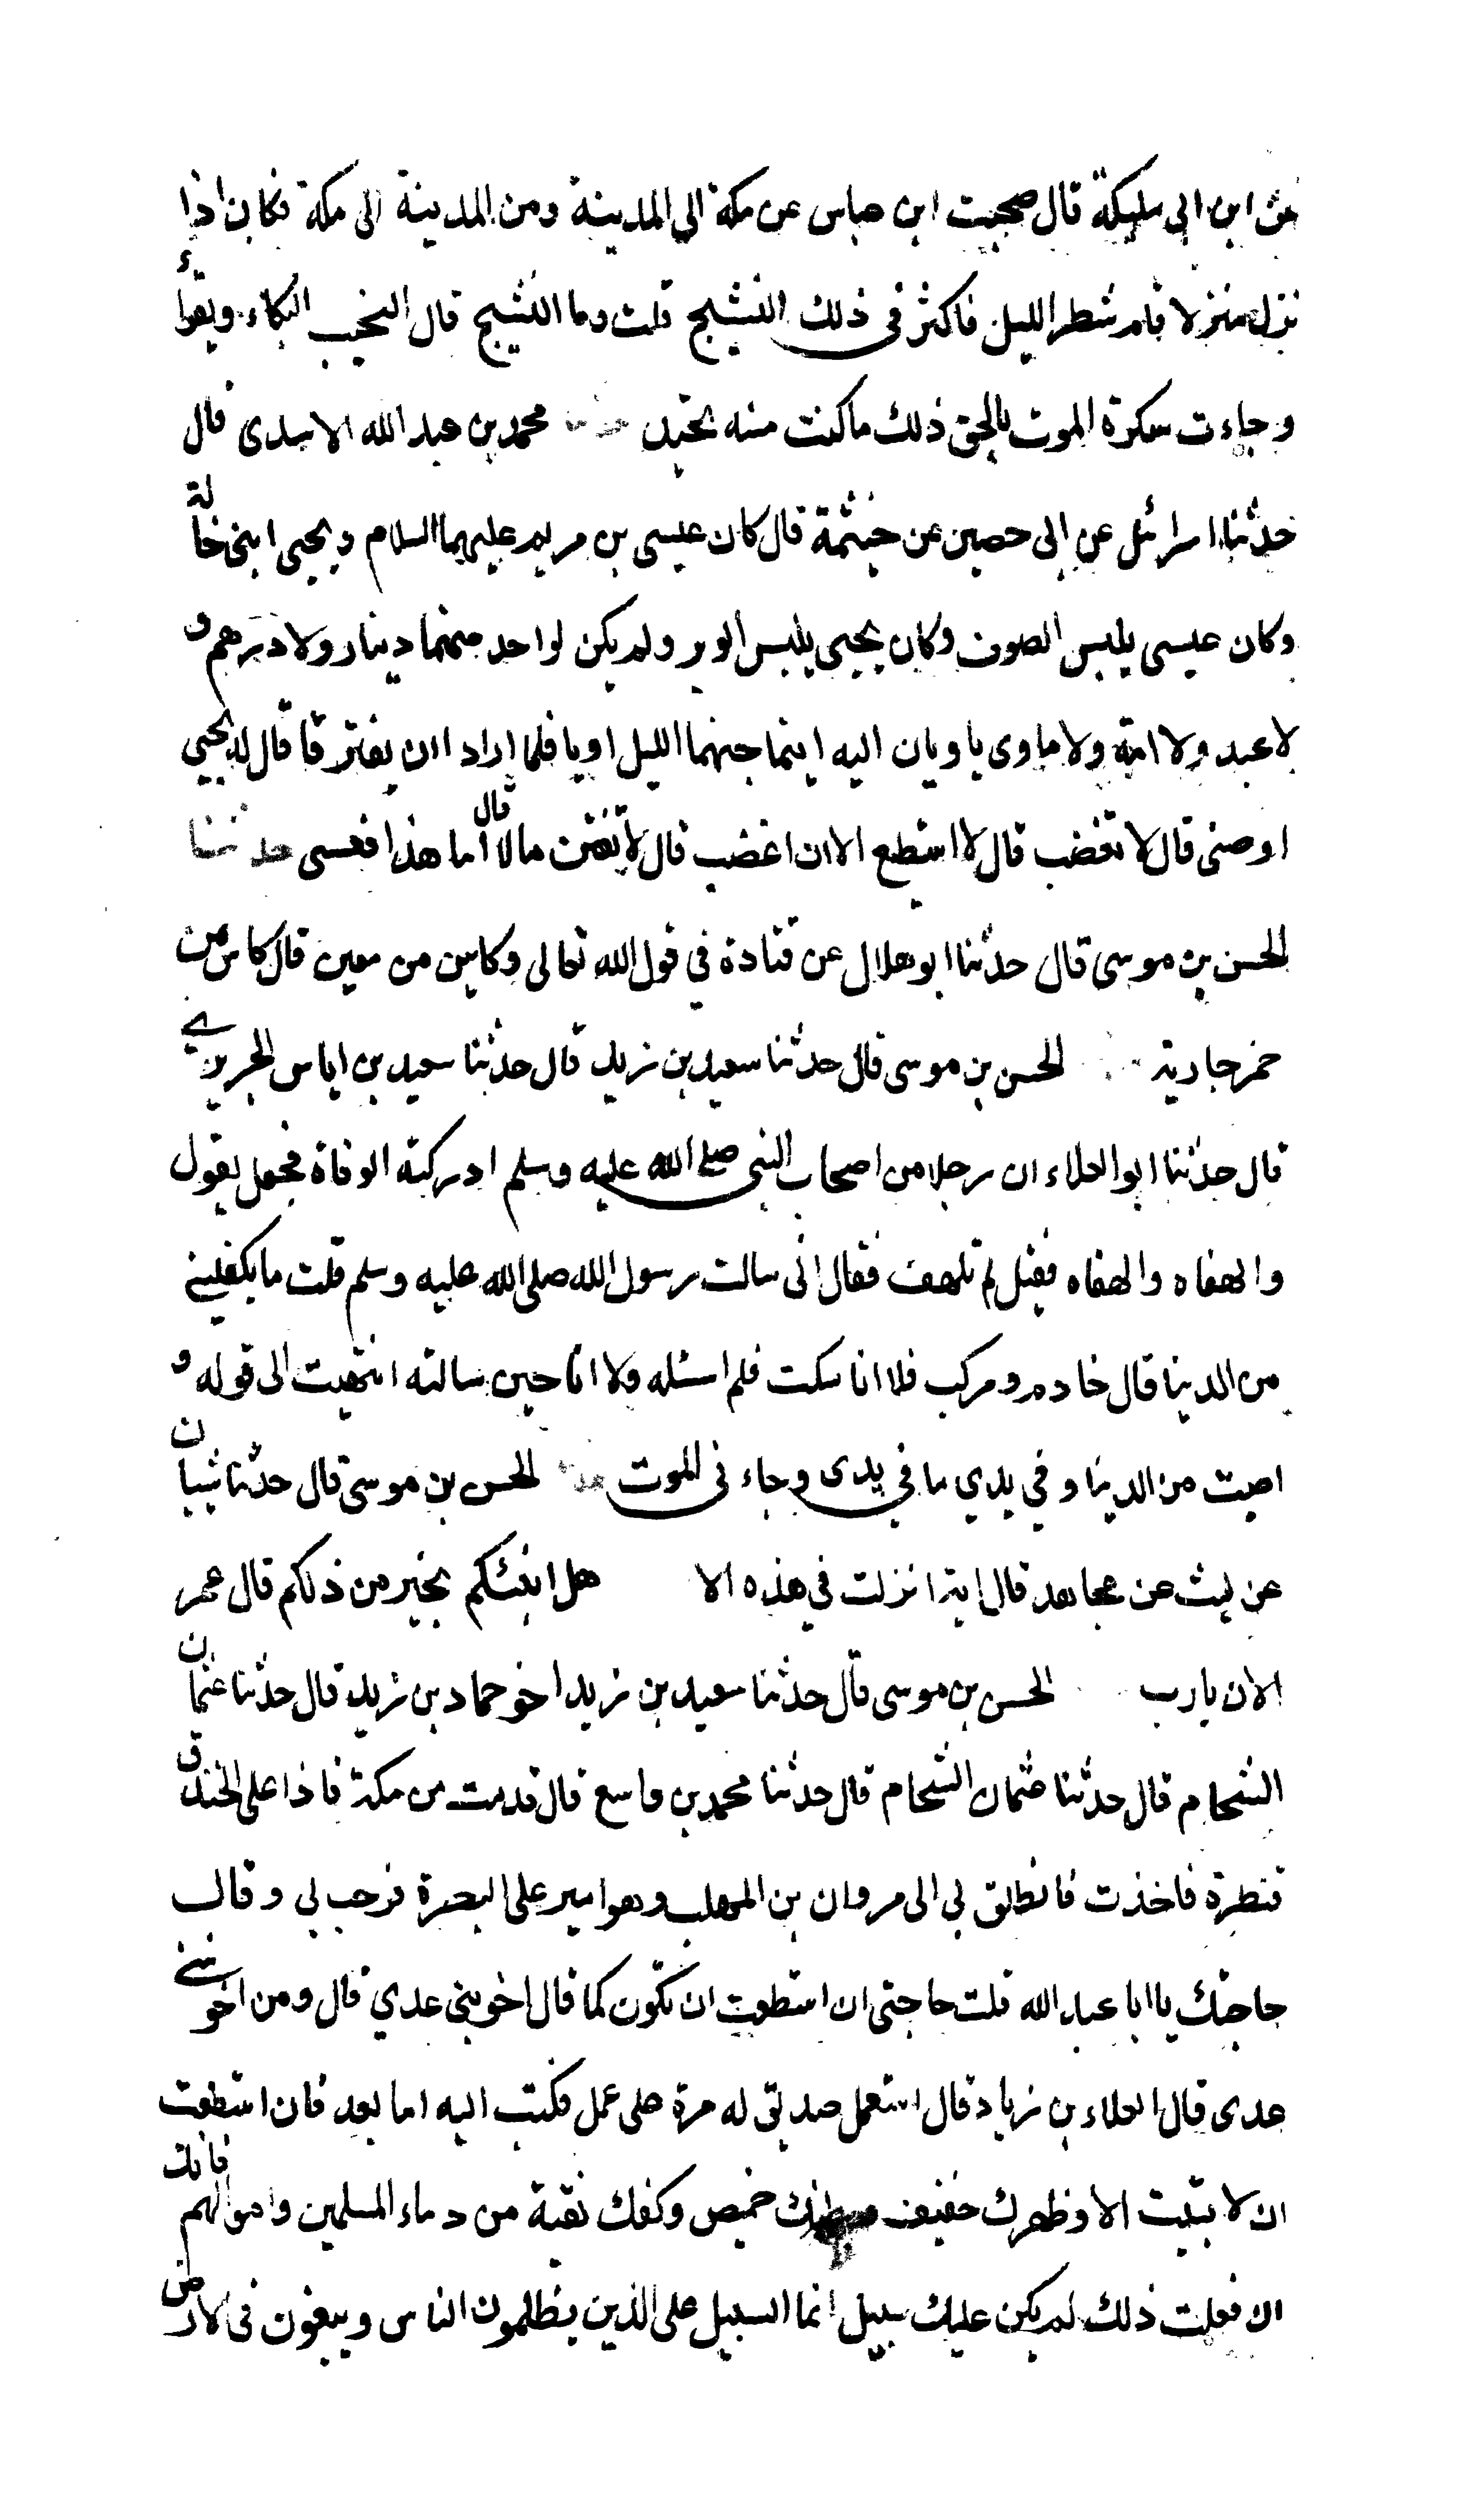 عن ابن ابى مليكة قال صحبت ابن عباس عن مكة الي المدينة ومن المدينة الى مكة فكان اذا
نزل منزلا قام شطر الليل فاكثر في ذلك النشيج قلت وما النشيج قال النحيب البكاء ويقرأ
وجاءت سكرة الموت بالحق ذلك ما كنت منه تحيد حدثنا محمد بن عبد الله الاسدى قال
حدثنا اسرائل عن ابى حصين عن خيثمة قال كان عيسى بن مريم عليهما السلام ويحيى ابنى خالة
وكان عيسى يلبس الصوف وكان يحيى يلبس الوبر ولم يكن لواحد منهما دينار ولا درهم و
لا عبد ولا امة ولا ماوى ياويان اليه اينما جنهما الليل اويا فلما ارادا ان يفترقا قال له يحيي
اوصنى قال لا تغضب قال لا استطع الا ان اغضب قال لا تقتن مالا قال أما هذا فعسى حدثنا
الحسن بن موسى قال حدثنا ابو هلال عن قتادة في قول الله تعالى وكاس من معين قال كاس من
خمر جارية الحسن بن موسى قال حدثنا سعيد بن زيد قال حدثنا سعيد بن اياس الجريري
قال حدثنا ابو العلاء ان رجلا من اصحاب النبي صلى الله عليه وسلم ادركته الوفاة فجعل يقول
والهفاه والهفاه فقيل لم تلهف فقال انى سالت رسول الله صلى الله عليه وسلم قلت ما يكفيني
من الدنيا قال خادم ومركب فلا انا سكت فلم اسئله ولا انا حين سالته انتهيت الى قوله و
اصبت من الدنيا و في يدي ما في يدى وجاء نى الموت حدثنا الحسن بن موسى قال حدثنا شيبان
عن ليث عن مجاهد قال اية انزلت في هذه الا هل انبئكم بخير من ذلكم قال عمر
الان يارب الحسن بن موسى قال حدثنا سعيد بن زيد اخو حماد بن زيد قال حدثنا عثمان
الشحام قال حدثنا عثمان الشحام قال حدثنا محمد بن واسع قال قدمت من مكة فاذا على الخندق
قنطرة فاخذت فانطلق بي الى مروان بن المهلب وهو امير على البصرة فرحب بي وقال
حاجتك يا ابا عبد الله قلت حاجتى ان استطعت ان تكون كما قال اخو بنى عدي قال ومن اخو بني
عدى قال العلاء بن زياد قال استعمل صديق له مرة على عمل فكتب اليه اما بعد فان استطعت
ان لا تبيت الا وظهرك خفيف وبطنك خميص وكفك نقية من دماء المسلمين واموالهم فانك
ان فعلت ذلك لم يكن عليك سبيل انما السبيل على الذين يظلمون الناس ويبغون فى الارض